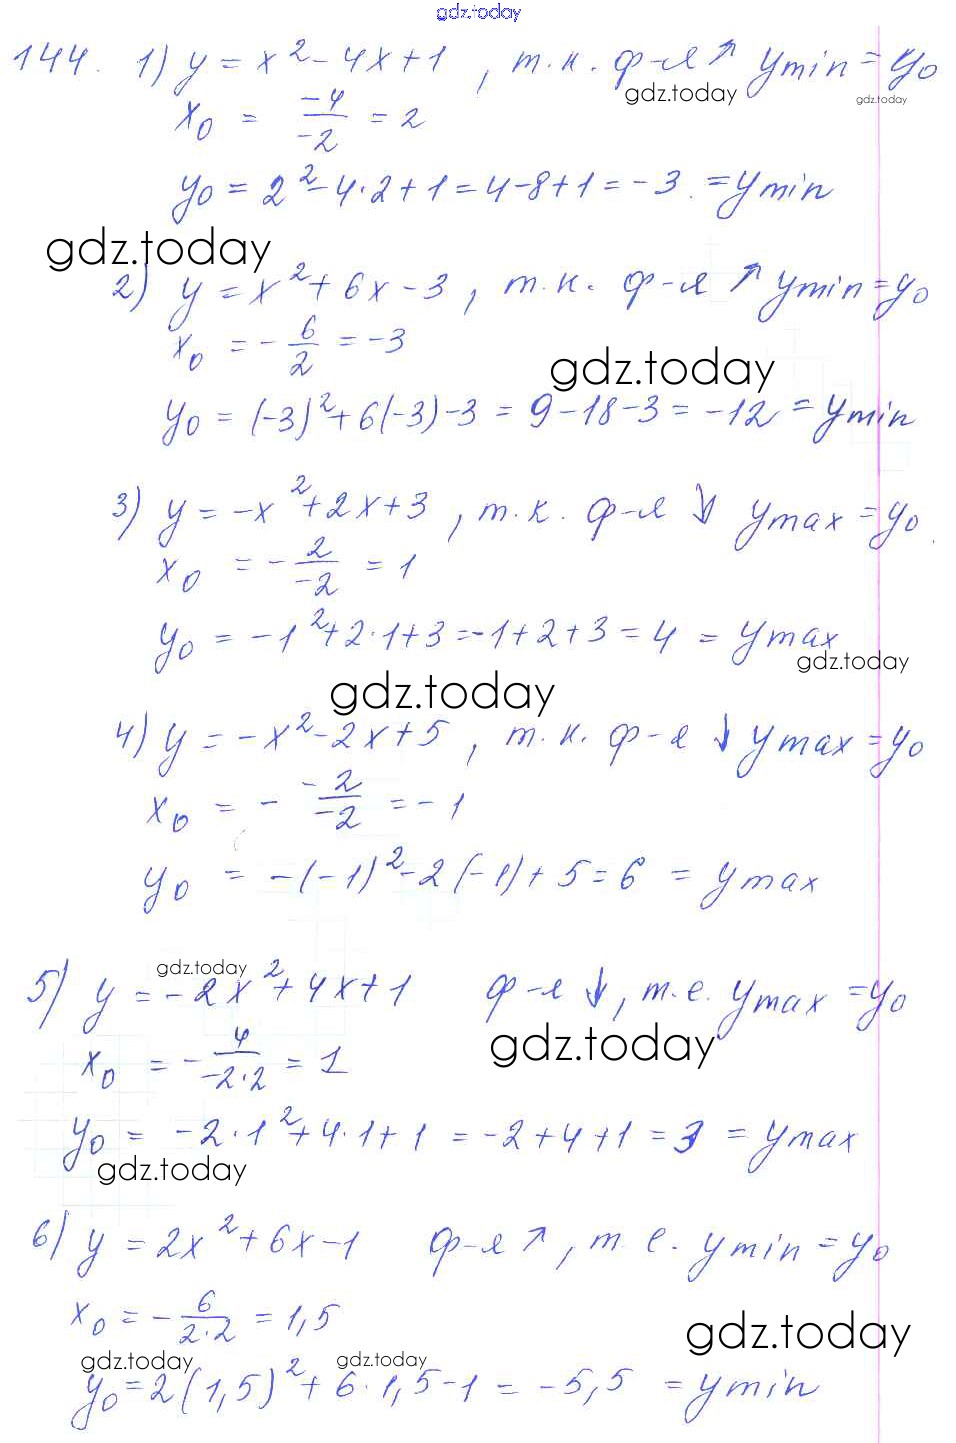 gdz.today
144. 1) y = x² - 4x + 1, т.к. ф-я ↗ ymin = y₀
gdz.today
gdz.today
x₀ = -4/-2 = 2
y₀ = 2² - 4·2 + 1 = 4 - 8 + 1 = -3. = ymin
gdz.today
2) y = x² + 6x - 3, т.к. ф-я ↗ ymin = y₀
x₀ = - 6/2 = -3
gdz.today
y₀ = (-3)² + 6(-3) - 3 = 9 - 18 - 3 = -12 = ymin
3) y = -x² + 2x + 3, т.к. ф-я ↓ ymax = y₀.
x₀ = - 2/-2 = 1
y₀ = -1² + 2·1 + 3 = -1 + 2 + 3 = 4 = ymax
gdz.today
gdz.today
4) y = -x² - 2x + 5, т.к. ф-я ↓ ymax = y₀
x₀ = - -2/-2 = -1
y₀ = -(-1)² - 2(-1) + 5 = 6 = ymax
gdz.today
5) y = -2x² + 4x + 1 ф-я ↓, т.е. ymax = y₀
gdz.today
x₀ = - 4/-2·2 = 1
y₀ = -2·1² + 4·1 + 1 = -2 + 4 + 1 = 3 = ymax
gdz.today
6) y = 2x² + 6x - 1 ф-я ↗, т.е. ymin = y₀
x₀ = - 6/2·2 = 1,5
gdz.today
gdz.today
gdz.today
y₀ = 2(1,5)² + 6·1,5 - 1 = -5,5 = ymin